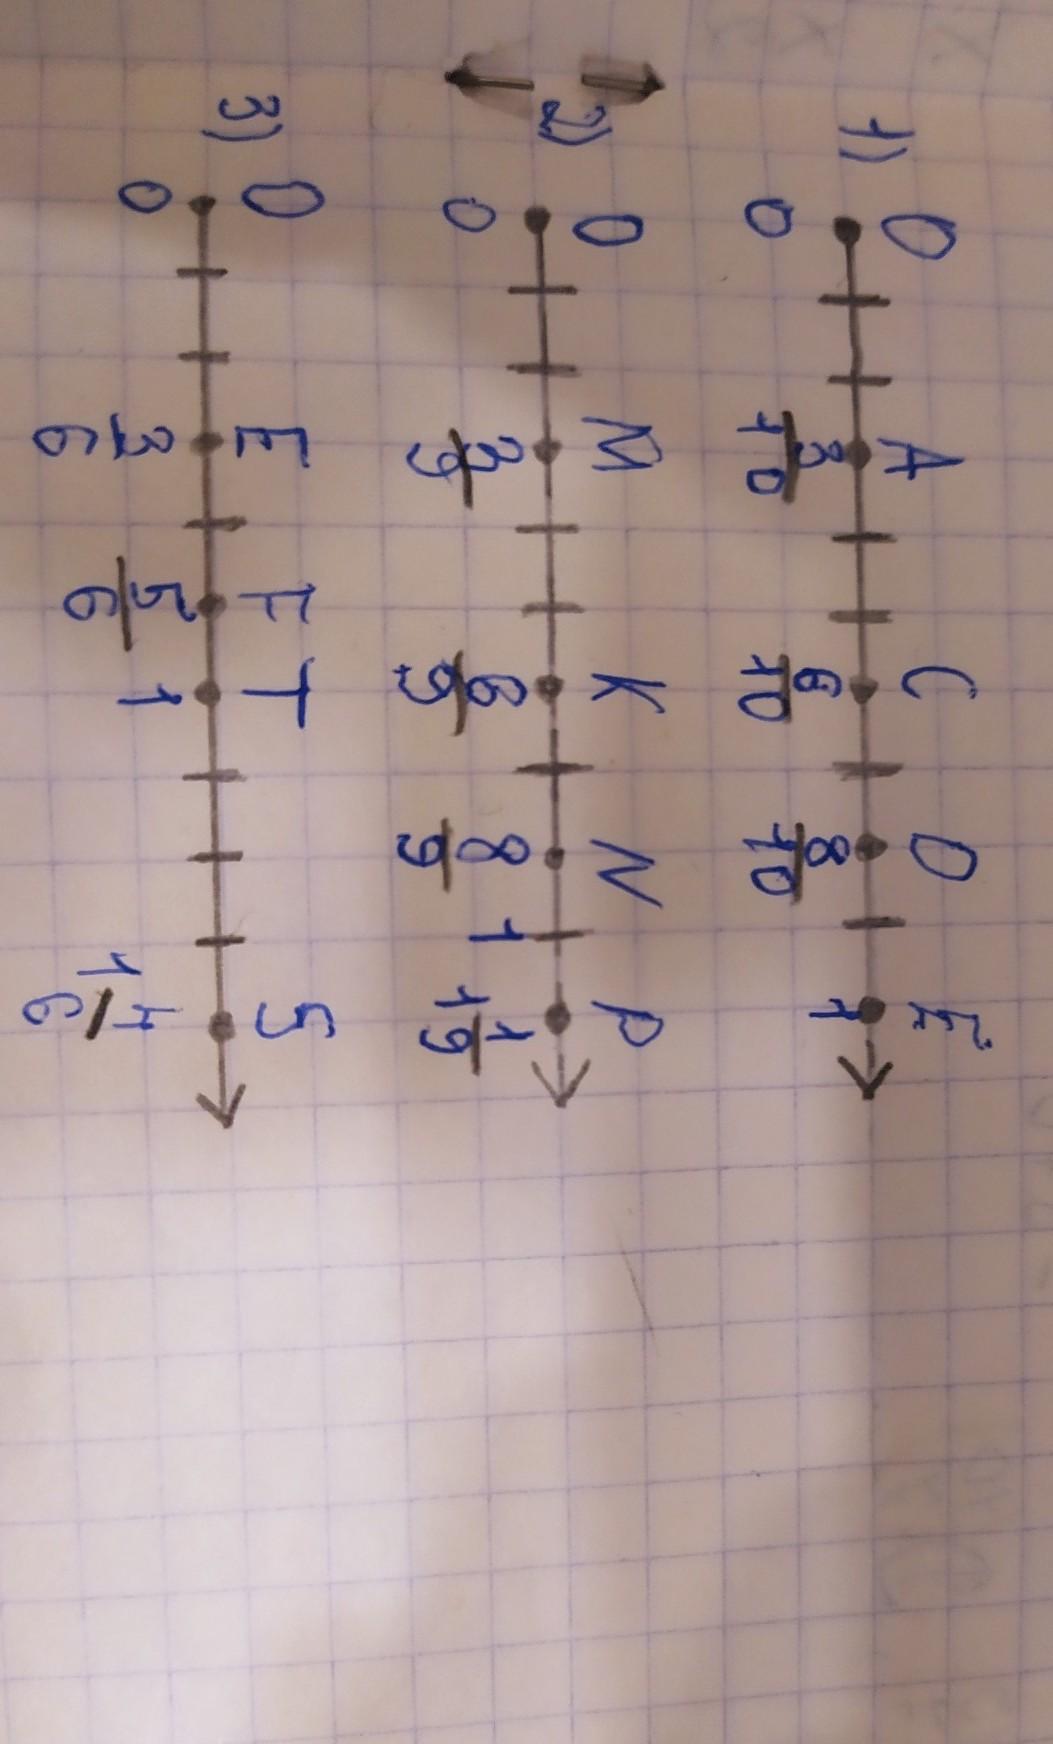 1)
O A C D E
0 3/10 6/10 8/10 1
2)
O M K N P
0 3/9 6/9 8/9 1 1 1/9
3)
O E F T S
0 3/6 5/6 1 1 4/6